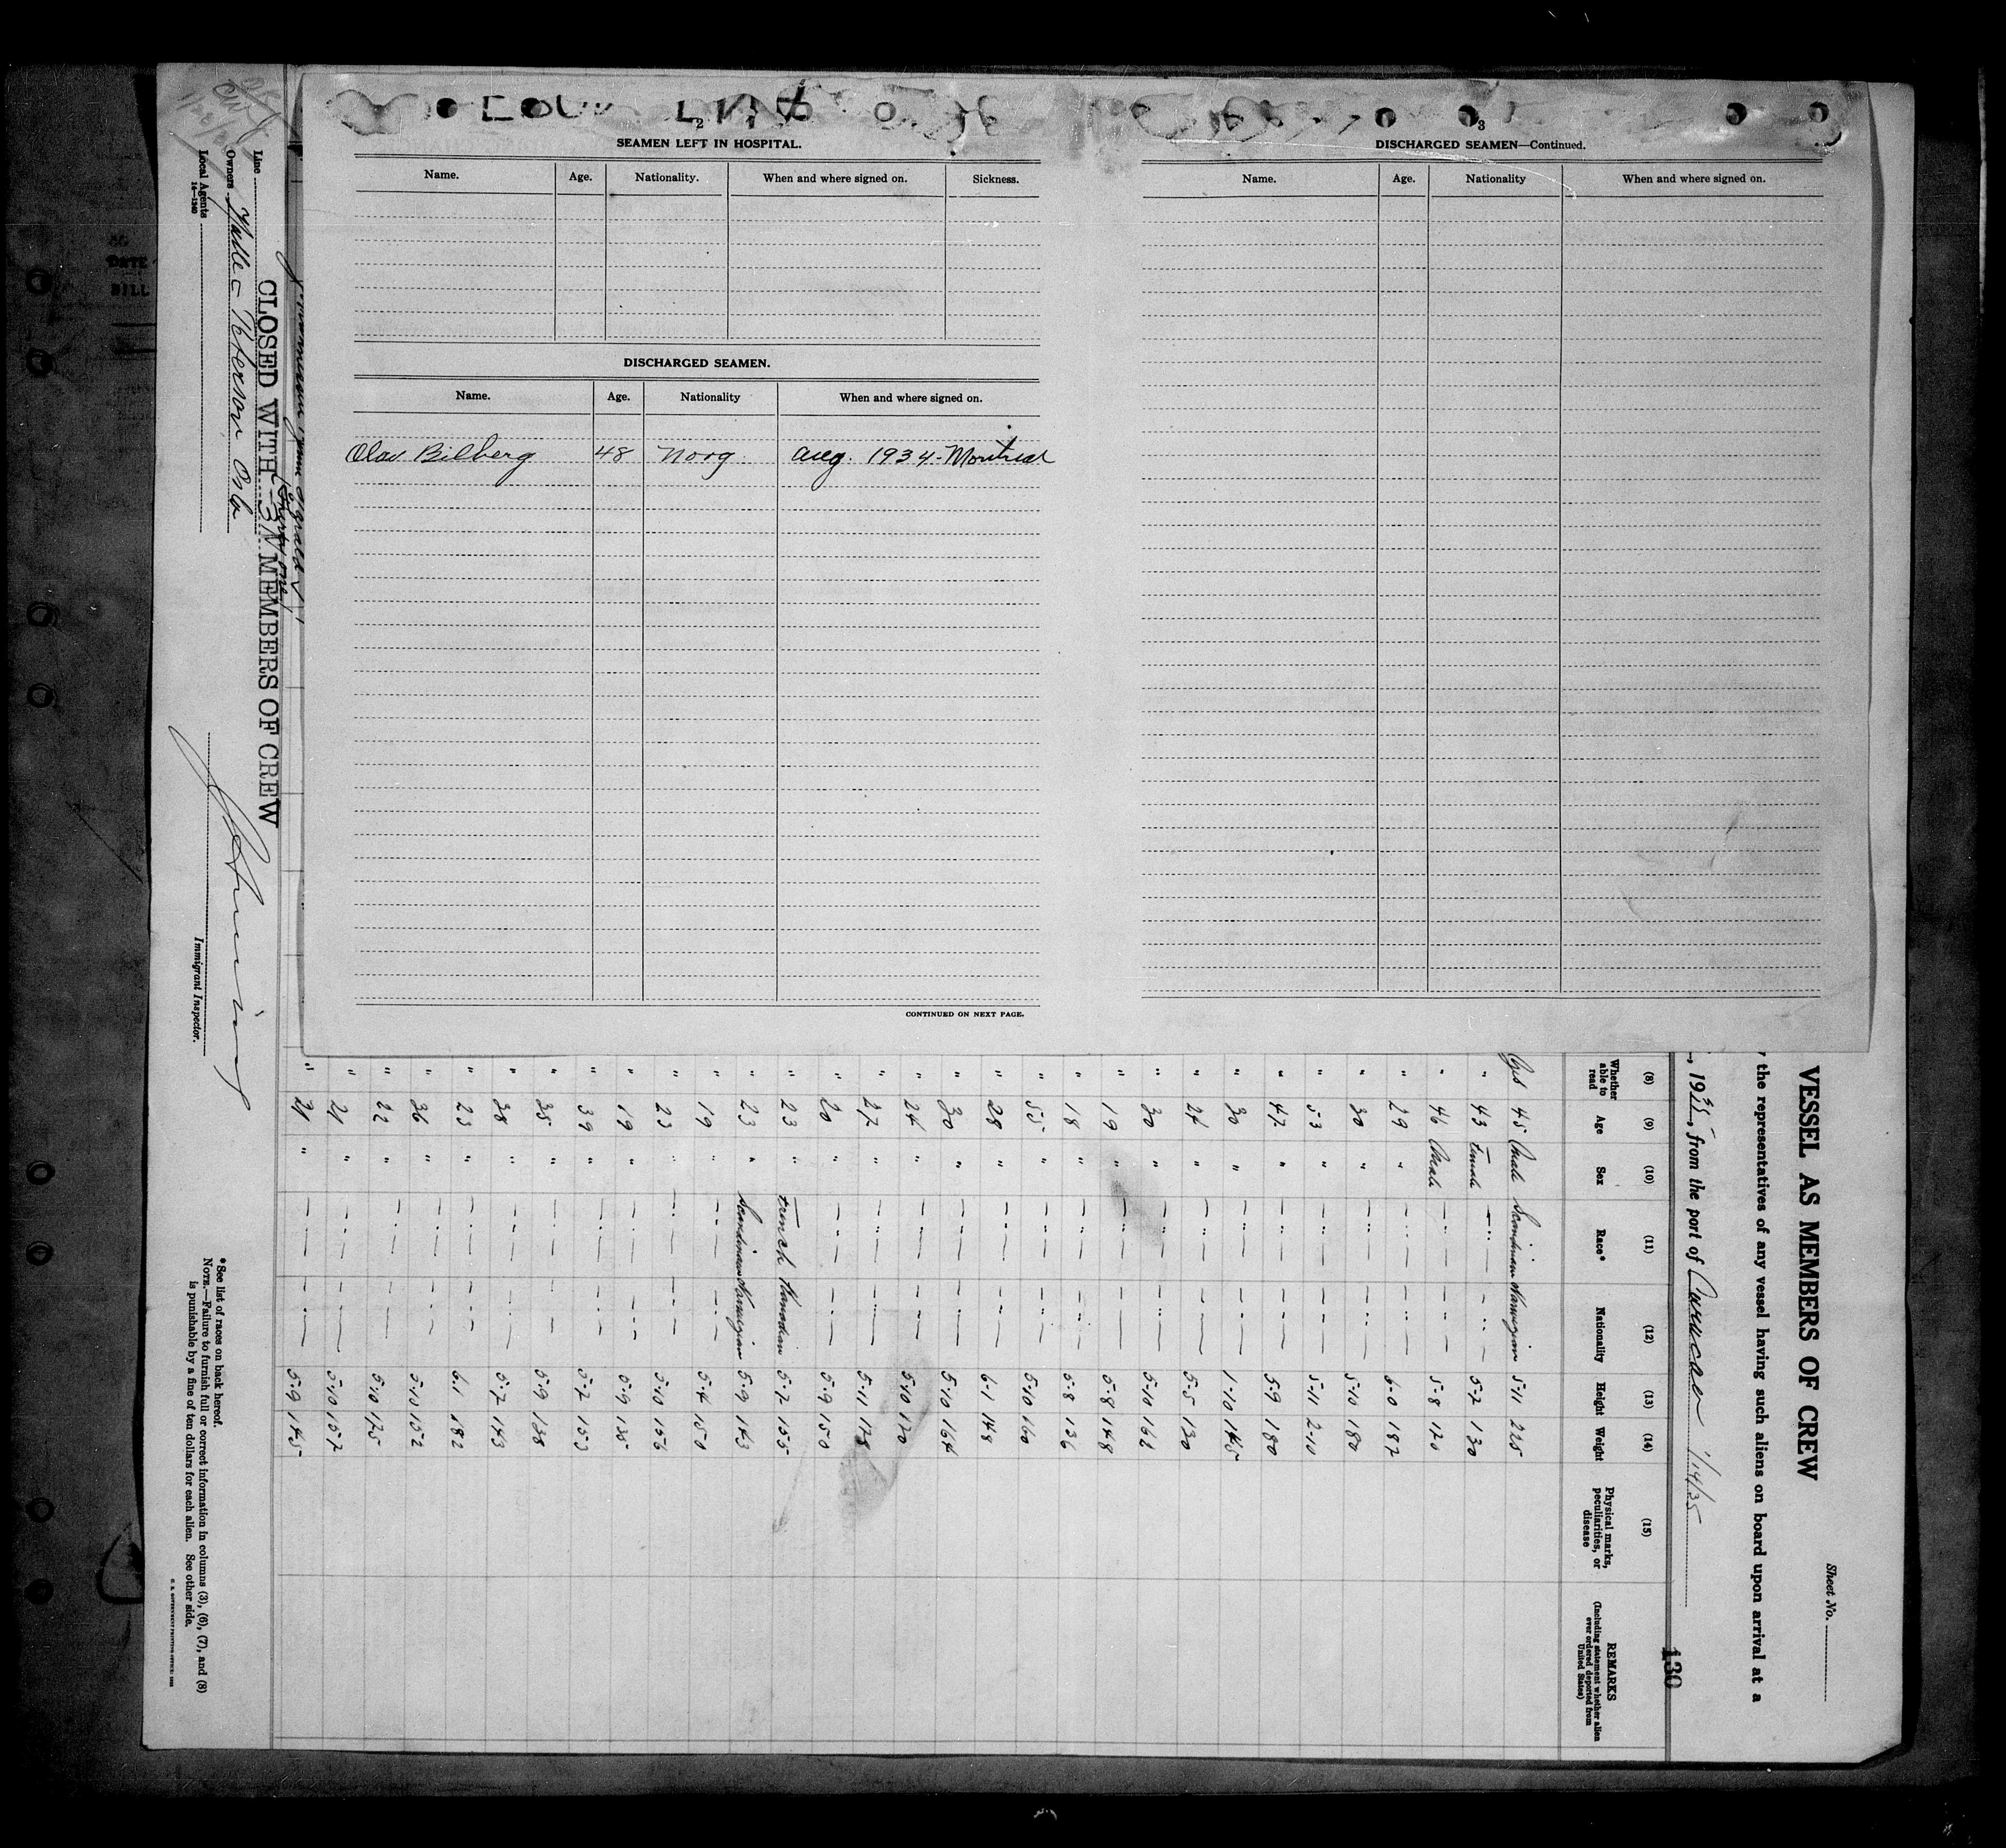 2
SEAMEN LEFT IN HOSPITAL.
Name. Age. Nationality. When and where signed on. Sickness.
DISCHARGED SEAMEN.
Name. Age. Nationality When and where signed on.
Olav Bilberg 48 Norg. Aug. 1934-Montreal
CONTINUED ON NEXT PAGE.
3
DISCHARGED SEAMEN—Continued.
Name. Age. Nationality When and where signed on.
Sheet No.
VESSEL AS MEMBERS OF CREW
the representatives of any vessel having such aliens on board upon arrival at a
, 1935, from the port of Curacao 1/14/35
130
(8) (9) (10) (11) (12) (13) (14) (15)
Whether able to read Age Sex Race* Nationality Height Weight Physical marks, peculiarities, or disease REMARKS (Including statement whether alien ever ordered deported from United States)
Yes 45 Male Scandinav Norwegian 5-11 225
" 43 Female " " 5-7 130
" 46 Male " " 5-8 170
" 29 " " " 6-0 187
" 30 " " " 5-10 180
" 53 " " " 5-11 210
" 47 " " " 5-9 180
" 30 " " " 1-10 145
" 24 " " " 5-5 130
" 30 " " " 5-10 168
" 19 " " " 5-8 148
" 18 " " " 5-8 136
" 55 " " " 5-10 160
" 28 " " " 6-1 148
" 30 " " " 5-10 164
" 24 " " " 5-10 170
" 27 " " " 5-11 178
" 20 " " " 5-9 150
" 23 " French Canadian 5-7 155
" 23 " Scandinav Norwegian 5-9 143
" 19 " " " 5-4 150
" 23 " " " 5-10 156
" 19 " " " 5-9 135
" 39 " " " 5-7 153
" 35 " " " 5-9 138
" 38 " " " 5-7 143
" 23 " " " 6-1 182
" 36 " " " 5-10 152
" 22 " " " 5-10 175
" 21 " " " 5-10 157
" 21 " " " 5-9 145
CLOSED WITH 31 MEMBERS OF CREW
(Thirty one)
Line
Owners
Local Agents
14—1240
Immigrant Inspector.
*See list of races on back hereof.
NOTE.—Failure to furnish full or correct information in columns (3), (6), (7), and (8)
is punishable by a fine of ten dollars for each alien. See other side.
DATE
BILL